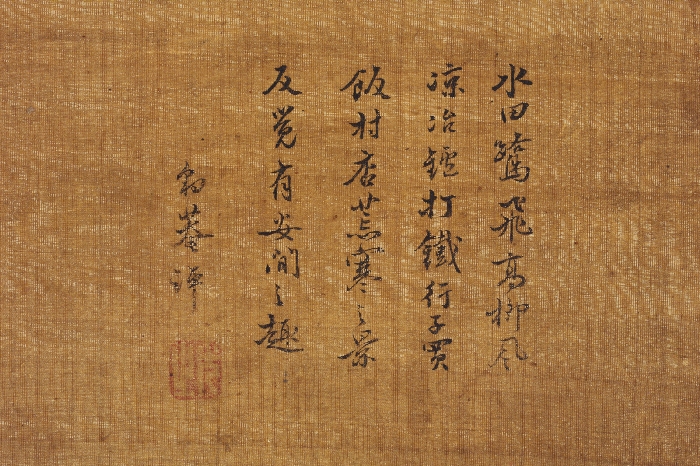 水田鷺飛高柳風
凉冶鑪打鐵行子買
飯村店荒寒之景
反覺有安閒之趣
豹菴評